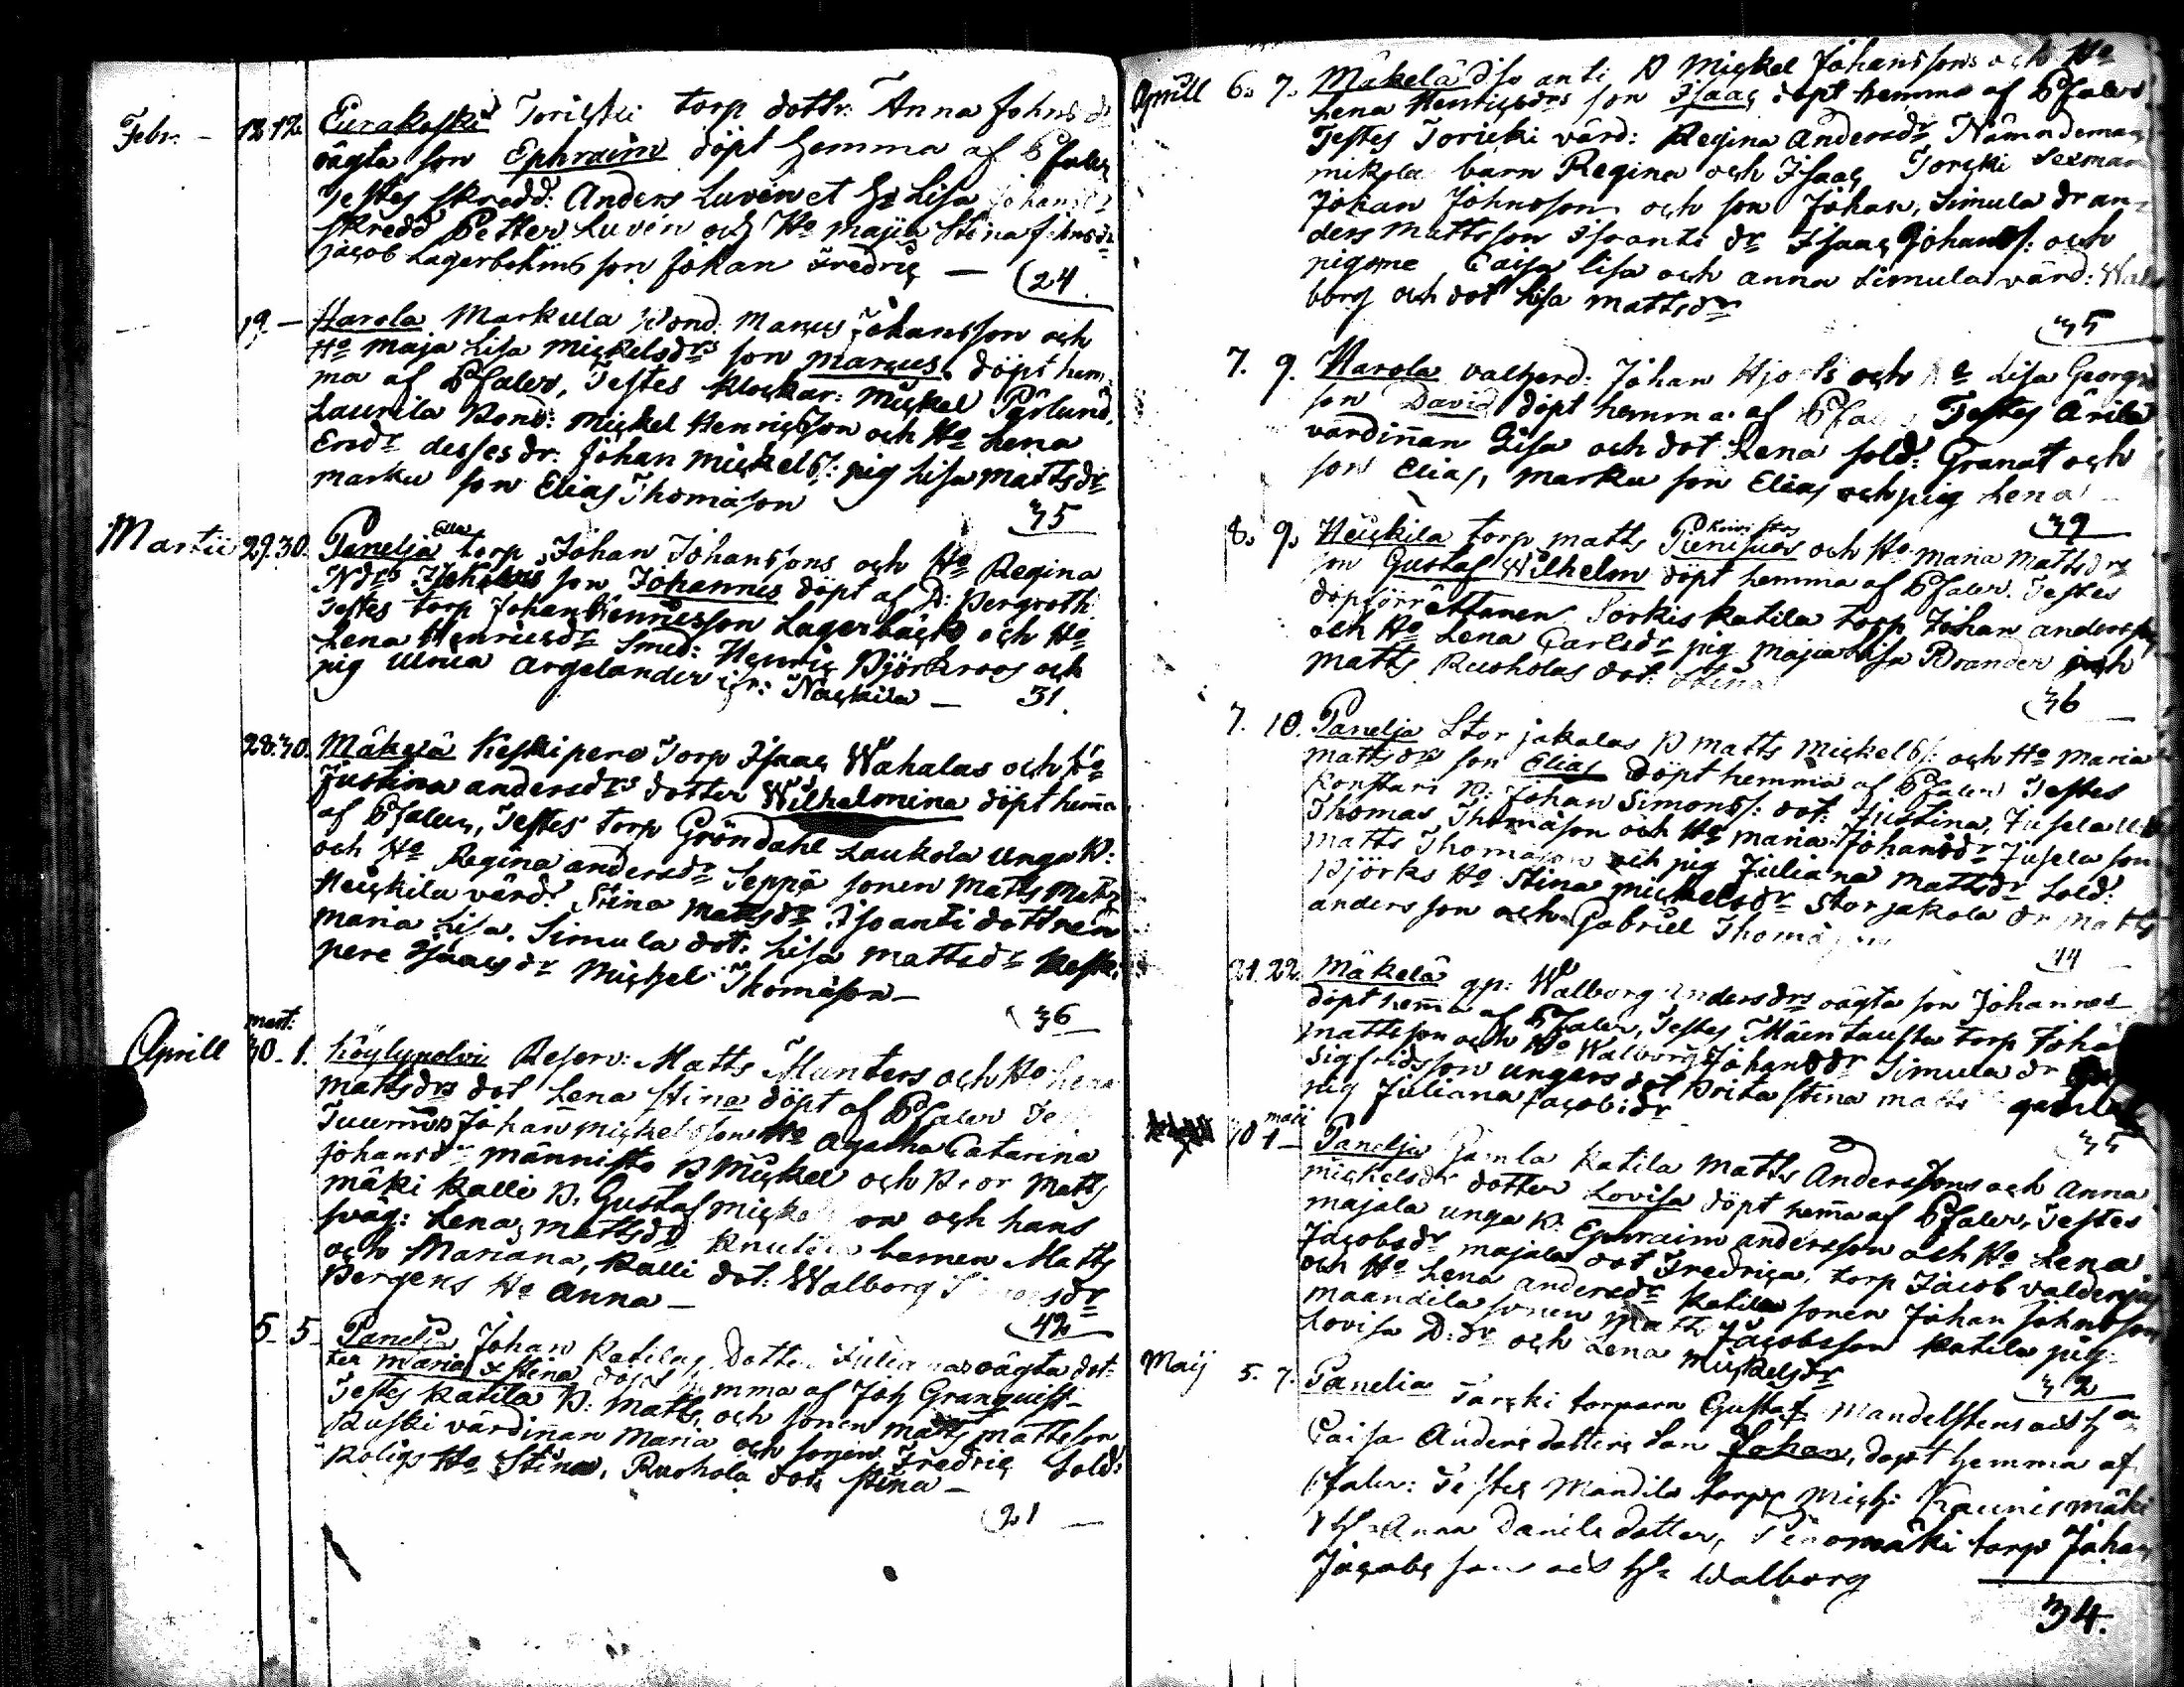 Febr. - 12. 12. Eurakoski Torikki torp dottr: Anna Johnsdr
oägta son Ephraim döpt hemma af Pfaler
Testes skredd: Anders Luvén et Ho Lisa Johansd
skredd Petter Luvén och Ho Majia Stina Johnsdr
Jacob Lagerbohms son Johan Fredric — 24
19. - Harola Markula Bond. Marcus Johansson och
Ho Maja Lisa Mickelsdrs son Marcus döpt hem-
ma af Pfaler, Testes Klockar: Mickel Pärlund,
Laurila Bond: Mickel Henricsson och Ho Lena
Ersdr desses dr: Johan Mickels: pig Lisa Mattsdr
marku son Elias Thomason
35
Martii 29. 30. Panelia torp Johan Johanssons och Ho Regina
son Johannes döpt af D: Bergroth
Testes torp Johan Henricsson Lagerbäck och Ho
Lena Henricsdr Smed: Henric Björkroos och
pig Ulrica Argelander Näckila —
31.
28. 30. Mäkelä Keskipere Torp Isaac Wahalas och Ho
Justina andersdrs dotter Wilhelmina döpt hema
af Pfaler, Testes torp Gröndahl Laukola unga B:
och Ho Regina andersdr Seppä sonen Matts Matts
Heickila värd: Stina Mattsdr Isoanti dottren
Maria Lisa. Simula dot: Lisa Mattsdr Keski
pere Isaacs dr Mickel Thomason —
36
Aprill mart: 30 - 1. Köylypolvi Reserv: Matts Munters och Ho Lena
Mattsdrs dot Lena Stina döpt af Pfaler Test
Tuumas Johan Mickelsson Ho Agatha Catarina
Johansdr männisto B Mickel och Matts
mäki Kalli B. Gustaf Mickelsson och hans
svåg: Lena Mattsdr Knutila barnen Matts
och Mariana, Kalli dot: Walborg Simonsdr
Bergens Ho Anna —
42
5. 5. Panelia Johan Katilas Dotter Julianas oägta dot-
ter Maria Stina döpt hemma af Joh Granquist
Testes Katila B: Matts, och sonen Matts Mattsson
Ruski värdinan Maria och sonen Fredric Sold:
Roligs Ho Stina, Ruohola dot: Stina —
21
Aprill 6. 7. Mäkelä Iso anti B Mickel Johanssons och Ho
Lena Henricsdrs son Isaac döpt hemma af Pfaler
Testes Toricki värd: Regina Andersdr Nämndeman
mikola barn Regina och Isaac Torcki Sexman
Johan Johnsson och son Johan, Simula dr an-
ders Mattsson Isoanti dr Isaac Johans: och
pigorne Caisa Lisa och Anna Simula värd: Wal
borg och dot Lisa Mattsdr
35
7. 9. Harola valtjerd: Johan Hjorts och Ho Lisa Georgs
son David döpt hemma af Pfaler Testes Ärilä
värdinan Lisa och dot Lena sold: Granat och
son Elias, Marku son Elias och pig Lena
39
8. 9. Heickila torp Matts och Ho Maria Mattsdrs
son Gustaf Wilhelm döpt hemma af Pfaler. Testes
döpförrättanen Sorkis Katila torp Johan anderss
och Ho Lena Carlsdr pig Maja Lisa Roander och
Matts Ruoholas dot: Stina
36
7. 10. Panelia Stor jakolas B Matts Mickels: och Ho Maria
Mattsdrs son Elias döpt hemma af Pfaler Testes
Konstari B: Johan Simons: dot: Justina, Jusela
Thomas Thomason och Ho Maria Johansdr Jusela son
Matts Thomason och pig Juliana Mattsdr Sold:
Björks Ho Stina Mickelsdr Stor jakola dr Matts
andersson och Gabriel Thomason
44
21. 22. Mäkelä qp: Walborg Andersdrs oägta son Johannes
döpt hema af Pfaler, Testes Mäentausta torp Joha
Mattsson och Ho Walborg Johansdr Simula dr
Sigfridsson ungars dot Brita Stina Matts
pig Juliana Jacobsdr
35
30 maii 1 - Panelia Gamla Katila Matts Anderssons och Anna
Mickelsdr dotter Lovisa döpt hema af Pfaler, Testes
Majala unga B: Ephraim andersson och Ho Lena
Jacobsdr Majala dot Fredrica, torp Jacob
och Ho Lena andersdr Katila sonen Johan Johnsson
maandila sonen Matts Jacobsson Katila pig
Lovisa D:dr och Lena Mickelsdr
32
Maij 5. 7. Panelia Tarcki torparn Gustaf Mandelstens och Ho
Caisa Anders dotters Son Johan, döpt hemma af
Pfaler: Testes Mandila torpr Mich: Kaunismäki
Ho Anna Daniels dotter, torp Johan
Jacobs son och Ho Walborg
34.